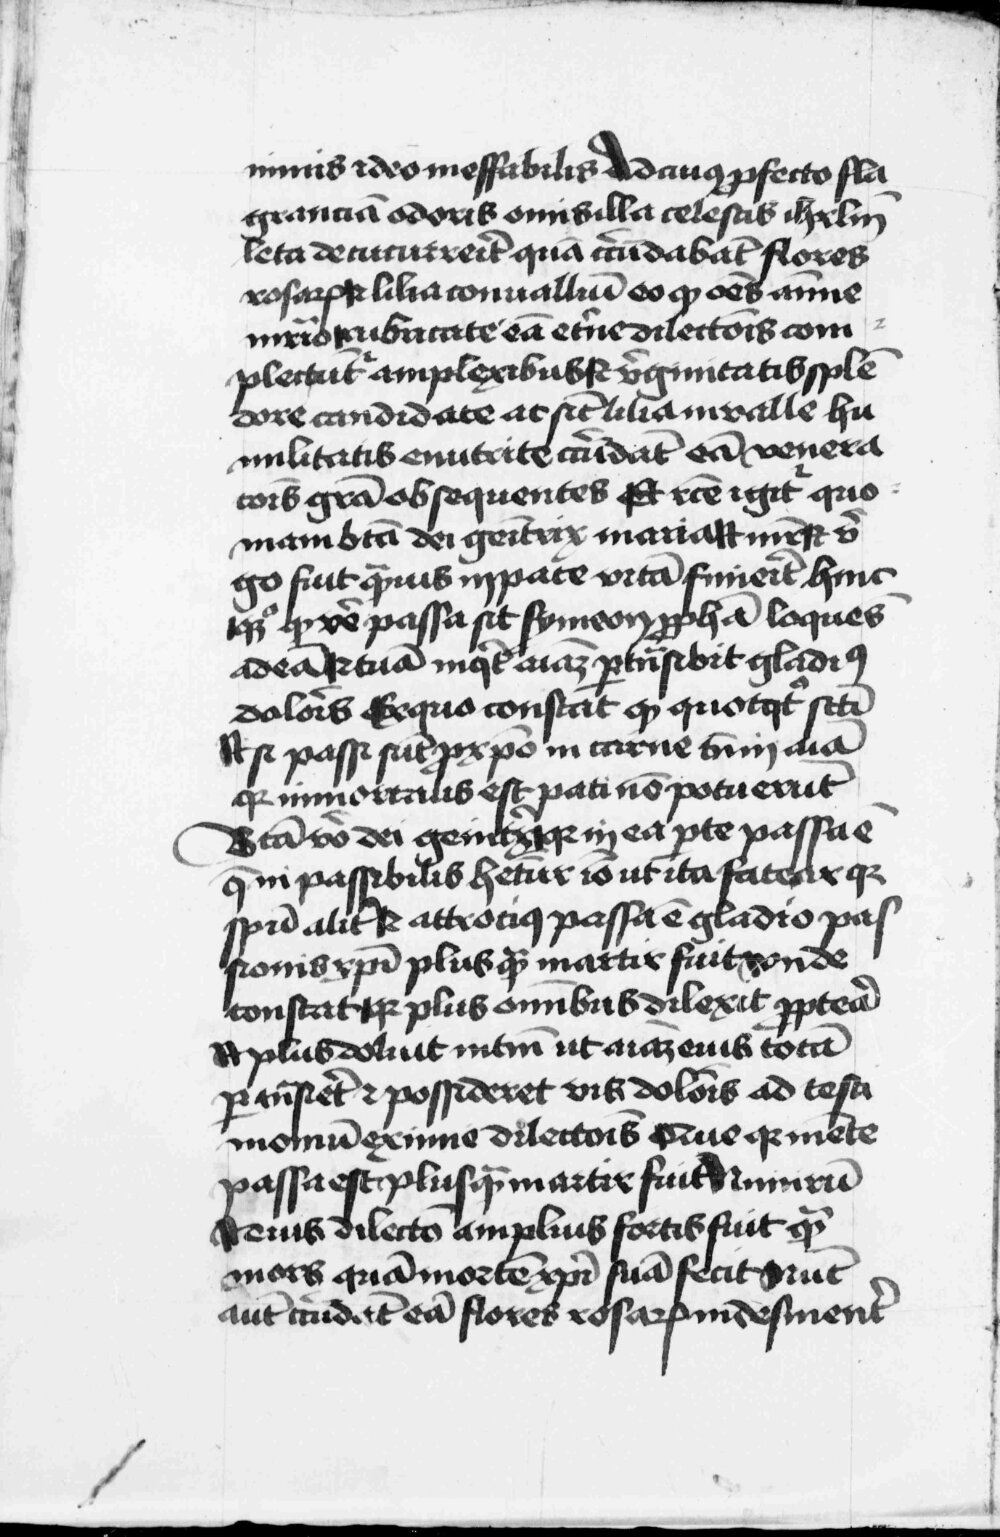 nimis ideo ineffabilis Ad cuiq̃ ꝓfecto fla
granciā odoris om̄is illa celestis ihr̄lm̄
leta decucurrerit̄ quā cc̄ūdabāt flores
rosaꝝ et lilia conualliū eo ꝙ oēs aīme
mr̄io rubricate eā et̄ne dilectōis com
plectūtʳ amplexibus et v̄ginitatis splē
dore candidate ac sic̄ lilia in valle hu
militatis enutrite cc̄ūdāt eā venera
cōis gr̄ā obsequentes Et rc̄e igit̄ʳ quo
niam btā dei geīt̄rix maria et mr̄ et v̄
go fuit q̄ꝫuis in pace vitā finierit̄ hinc
qꝫ° ꝙ vē passa sit symeon ꝓph̄ā loquēs
ad eā et tuā inq̇t aīaꝫ ꝑtn̄sibit gladiꝰ
dolor̄is Ex quo constāt ꝙ quotq̇t° sc̄ti
Et si passi sūt ꝓ xp̄o in carne tn̄ in aīā
qꝛ inmortalis est pati nō potuerūt
Btā v̄o dei genit̄x qꝛ in ea ꝑte passa ē
q̄ inpassibilis hētur iō ut ita fatear qꝛ
sp̄ū alit̄ et attrotiꝰ passa ē gladio pas
sionis xp̄i plus q̄ꝫ martir fuit vnde
constat qꝛ plus om̄ibus dilexit ꝓpteā
Et plus doluit intm̄ ut aīaꝫ eius totā
ꝑtn̄siret̄ ⁊ possideret vis dolor̄is ad testi
moniū eximie dilectōis Que qꝛ mēte
passa est plus q̄ꝫ martir fuit Nimirū
Et eius dilectō amplius fortis fuit q̄ꝫ
mors quā mortē xp̄i suā fecit
aūt cc̄ūdāt eā flores rosaꝝ indesinent̄